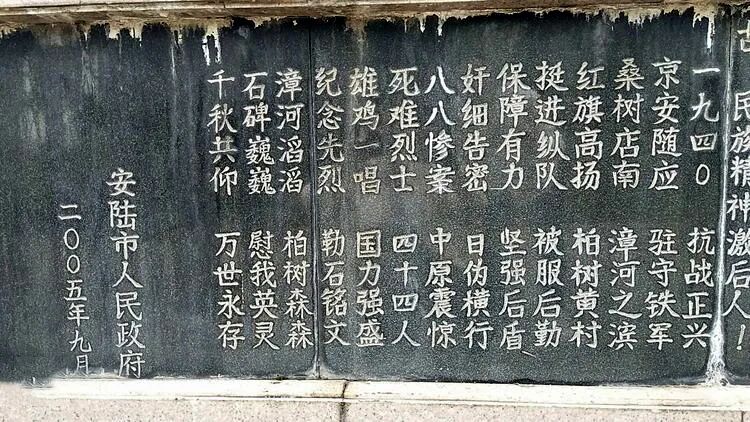 民族精神激后人！
一九四〇 抗战正兴
京安随应 驻守铁军
桑树店南 漳河之滨
红旗高扬 柏树黄村
挺进纵队 被服后勤
保障有力 坚强后盾
奸细告密 日伪横行
八八惨案 中原震惊
死难烈士 四十四人
雄鸡一唱 国力强盛
纪念先烈 勒石铭文
漳河滔滔 柏树森森
石碑巍巍 慰我英灵
千秋共仰 万世永存
安陆市人民政府
二〇〇五年九月